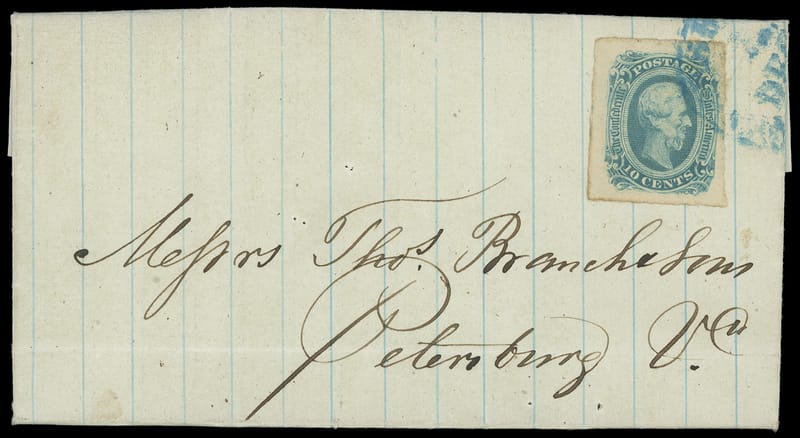 POSTAGE
The Confederate States of America
10 CENTS
Messrs Thos. Branch & Sons
Petersburg Va.